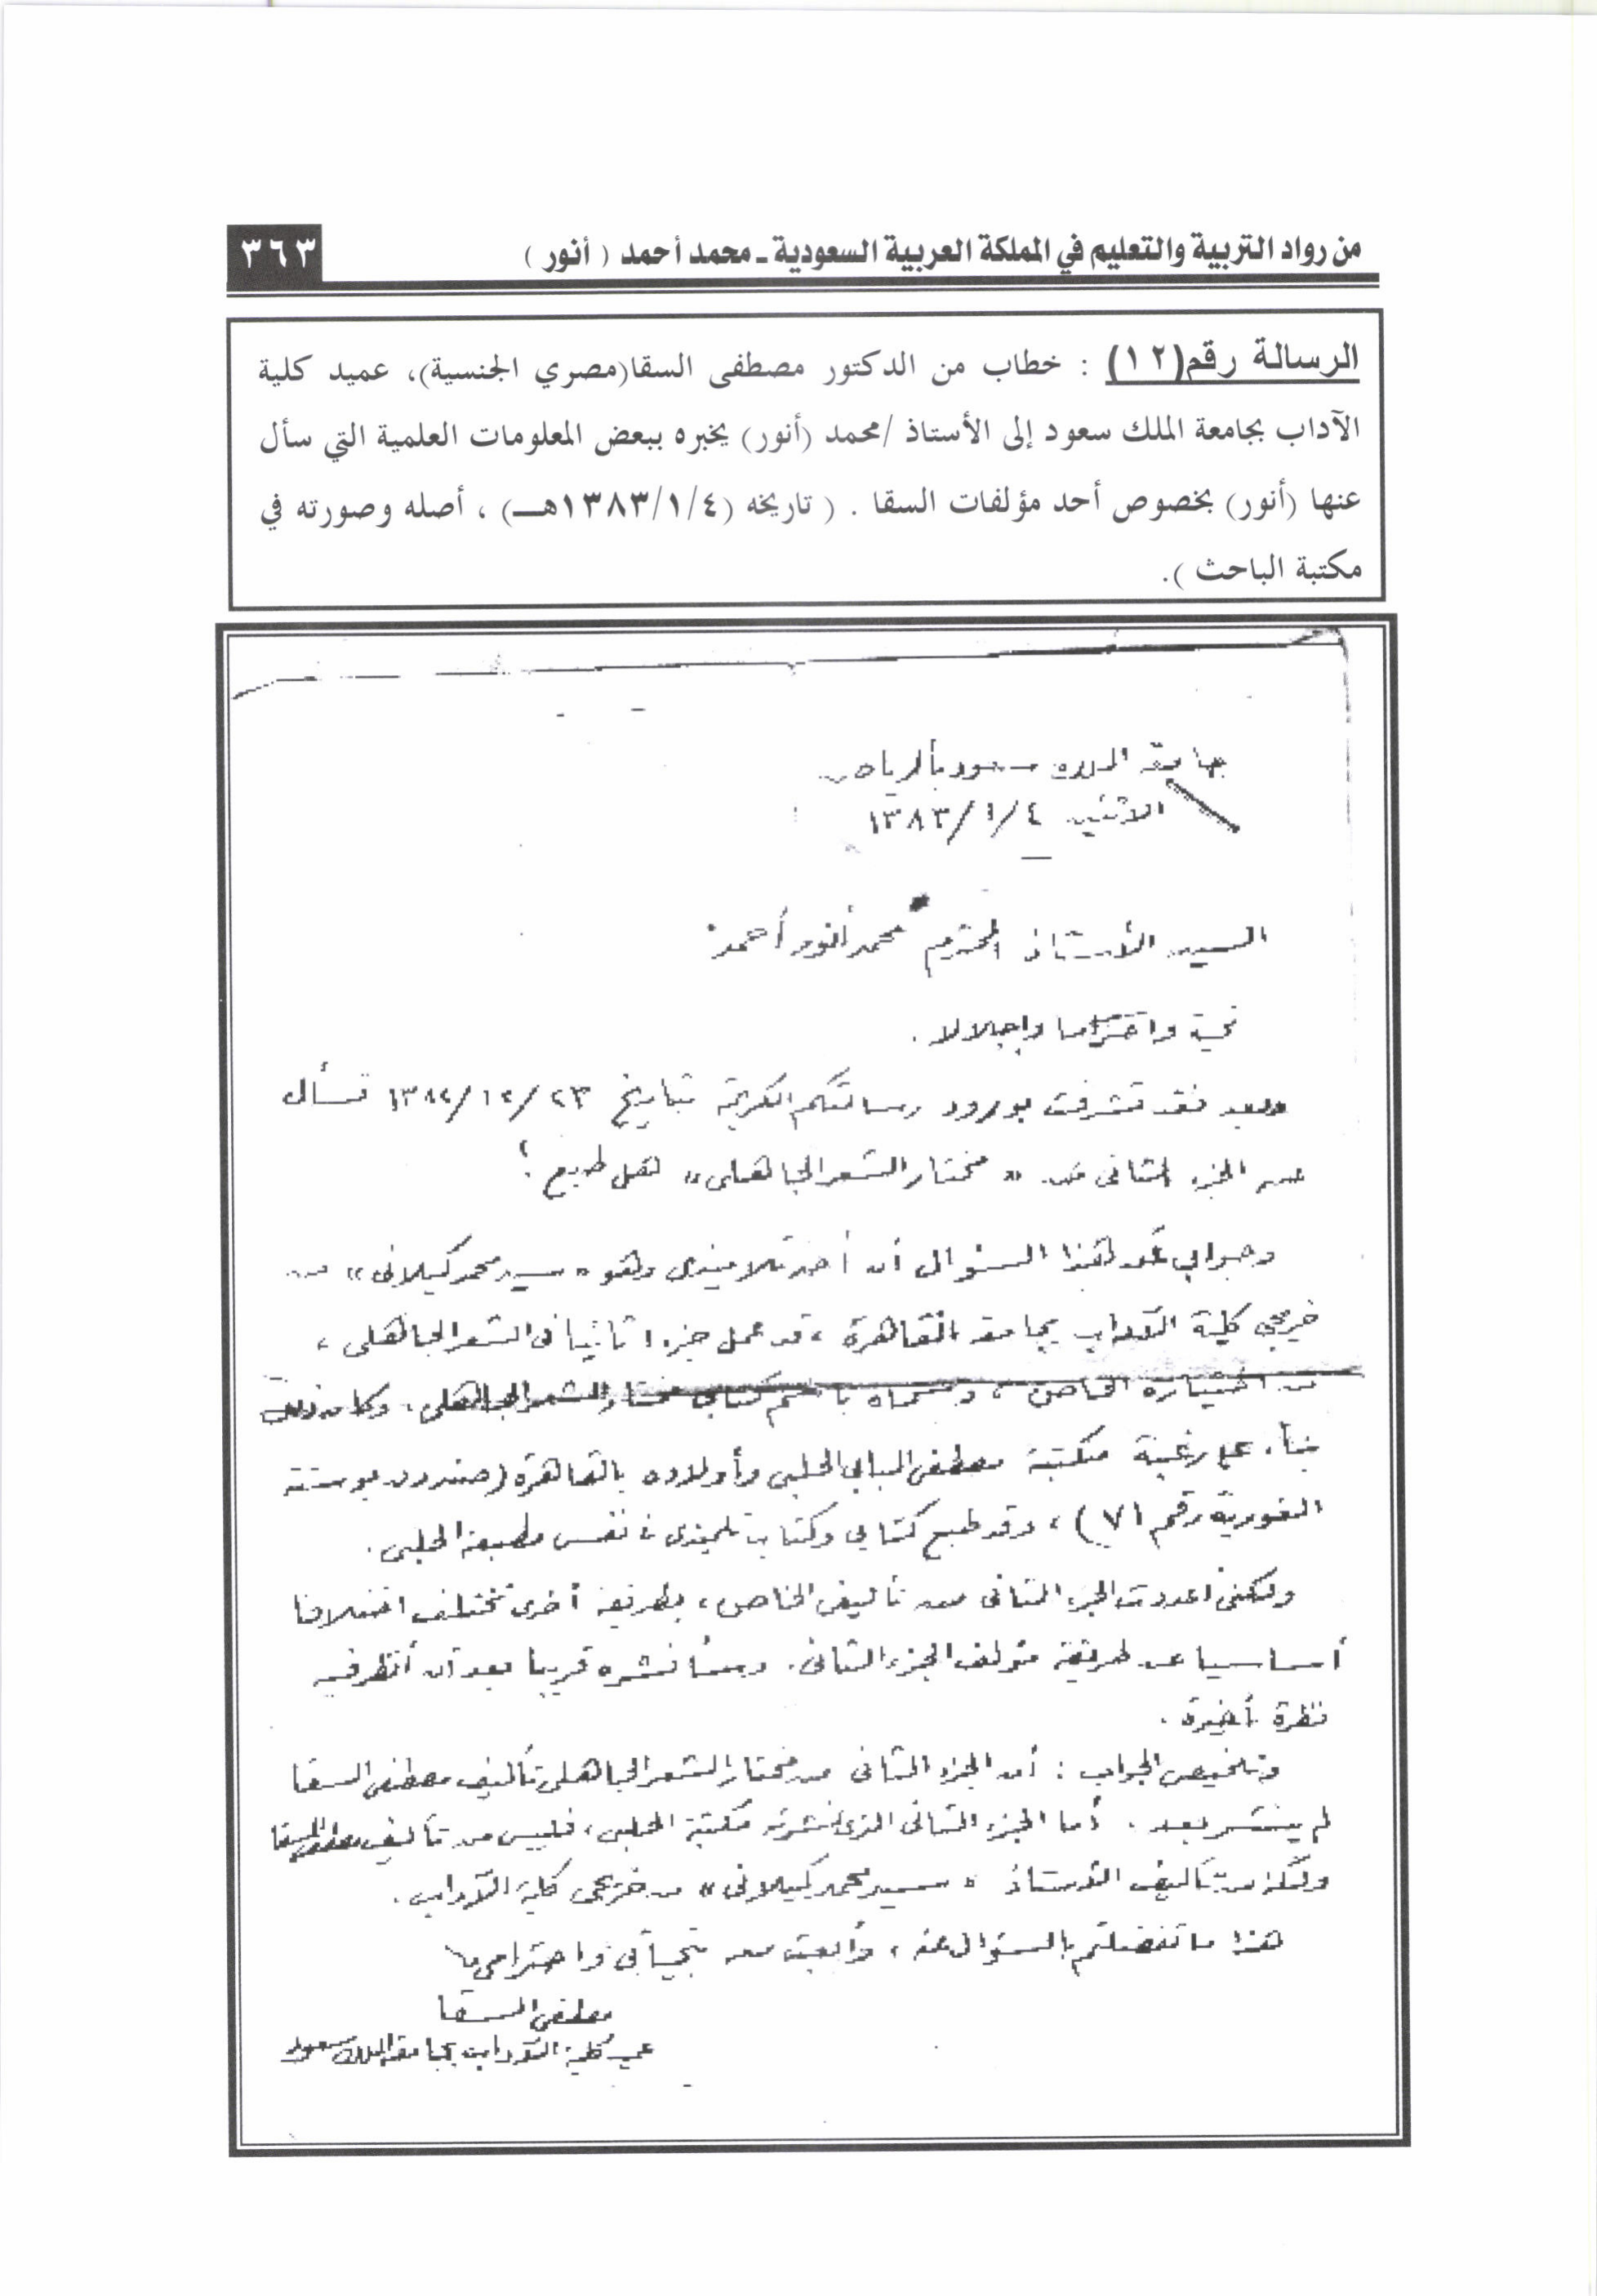 من رواد التربية والتعليم في المملكة العربية السعودية ـ محمد أحمد ( أنور )
٣٦٣
الرسالة رقم(١٢) : خطاب من الدكتور مصطفى السقا(مصري الجنسية)، عميد كلية
الآداب بجامعة الملك سعود إلى الأستاذ /محمد (أنور) يخبره ببعض المعلومات العلمية التي سأل
عنها (أنور) بخصوص أحد مؤلفات السقا . ( تاريخه (١٣٨٣/١/٤هـ) ، أصله وصورته في
مكتبة الباحث ).
جامعة الملك سعود بالرياض
الاثنين ١٣٨٣/١/٤
السيد الأستاذ المحترم محمد أنور أحمد
تحية واحتراما وإجلالا .
وبعد فقد تشرفت بورود رسالتكم الكريمة بتاريخ ١٣٨٢/١٢/٢٣ تسأل
عن الجزء الثاني من « مختار الشعر الجاهلى » هل طبع ؟
وجوابي عن هذا السؤال أن أحد تلاميذى وهو « سيد محمد كيلانى » من
خريجي كلية الآداب بجامعة القاهرة ، قد عمل جزءا ثانيا فى الشعر الجاهلى ،
من اختياره الخاص ، وسماه باسم كتابي مختار الشعر الجاهلى . وكان ذلك
بناء على رغبة مكتبة مصطفى البابي الحلبى وأولاده بالقاهرة (صندوق بوستة
الغورية رقم ٧١) ، وقد طبع كتابي وكتاب تلميذى فى نفس مطبعة الحلبى .
ولكنى أعددت الجزء الثانى من تأليفى الخاص ، بطريقة أخرى تختلف اختلافا
أساسيا عن طريقة مؤلف الجزء الثانى . وسأنشره قريبا بعد أن أنظر فيه
نظرة أخيرة .
وتلخيص الجواب : أن الجزء الثانى من مختار الشعر الجاهلى تأليف مصطفى السقا
لم ينشر بعد . أما الجزء الثانى الذى نشرته مكتبة الحلبى ، فليس من تأليف مصطفى السقا
ولكنه من تأليف الأستاذ « سيد محمد كيلانى » من خريجى كلية الآداب .
هذا ما تفضلتم بالسؤال عنه ، وأبعث معه بتحياتى واحترامى
مصطفى السقا
عميد كلية الآداب بجامعة الملك سعود